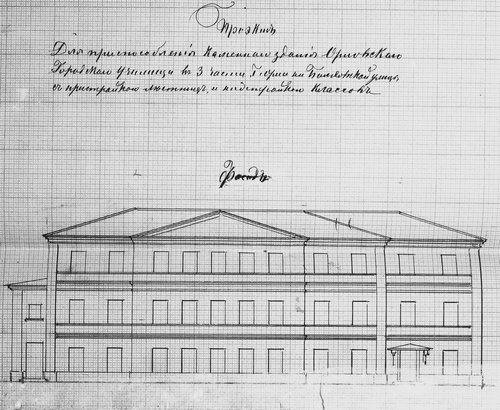 Проэктъ
Для приспособленія каменнаго зданія Орловскаго
Городскаго училища въ 3 части г. Орла на Болховской улицѣ,
съ пристройкою лѣстницъ, и надстройкою классовъ.
Фасадъ.